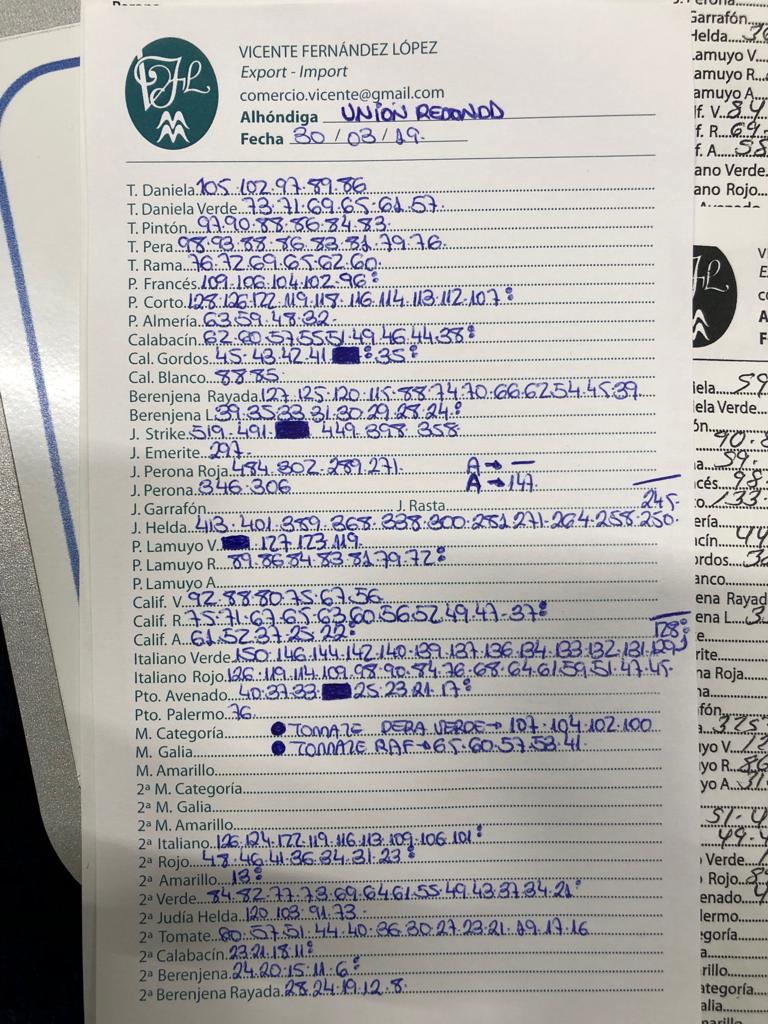 VICENTE FERNÁNDEZ LÓPEZ
Export - Import
comercio.vicente@gmail.com
Alhóndiga UNIÓN REDONDO
Fecha 30/03/19.
T. Daniela 105.102.97.89.86
T. Daniela Verde 73.71.69.65.61.57.
T. Pintón 97.90.88.86.84.83
T. Pera 98.93.88.86.83.81.79.76
T. Rama 76.72.69.65.62.60.
P. Francés 109.106.104.102.96:
P. Corto 128.126.122.119.118.116.114.113.112.107:
P. Almería 63.59.48.32
Calabacín 62.60.57.55.51.49.46.44.38:
Cal. Gordos 45.43.42.41 :35:
Cal. Blanco 88.85.
Berenjena Rayada 127.125.120.115.88.74.70.66.62.54.45.39
Berenjena L 39.35.33.31.30.29.28.24:
J. Strike 519.491. 449.398.358
J. Emerite 297.
J. Perona Roja 484.302.289.271. A→ —
J. Perona 346.306 A→147.
J. Garrafón J. Rasta 245.
J. Helda 413.401.389.368.338.300.281.271.264.258.250.
P. Lamuyo V. 127.123.119.
P. Lamuyo R 89.86.84.83.81.79.72:
P. Lamuyo A
Calif. V. 92.88.80.75.67.56
Calif. R. 75.71.67.65.63.60.56.52.49.47.37:
Calif. A. 61.52.37.25.22: 128:
Italiano Verde 150.146.144.142.140.139.137.136.134.133.132.131.129
Italiano Rojo 126.119.114.109.98.90.84.76.68.64.61.59.51.47.45.
Pto. Avenado 40.37.33 25.23.21.17:
Pto. Palermo 76.
M. Categoría ● TOMATE PERA VERDE→ 107.104.102.100
M. Galia ● TOMATE RAF→65.60.57.53.41.
M. Amarillo
2ª M. Categoría
2ª M. Galia
2ª M. Amarillo
2ª Italiano 126.124.122.119.116.113.109.106.101:
2ª Rojo 48.46.41.36.34.31.23:
2ª Amarillo 13:
2ª Verde 84.82.77.73.69.64.61.55.49.43.37.34.21:
2ª Judía Helda 120.103.91.73.
2ª Tomate 60.57.51.44.40.36.30.27.23.21.19.17.16
2ª Calabacín 23.21.18.11:
2ª Berenjena 24.20.15.11.6:
2ª Berenjena Rayada 28.24.19.12.8.